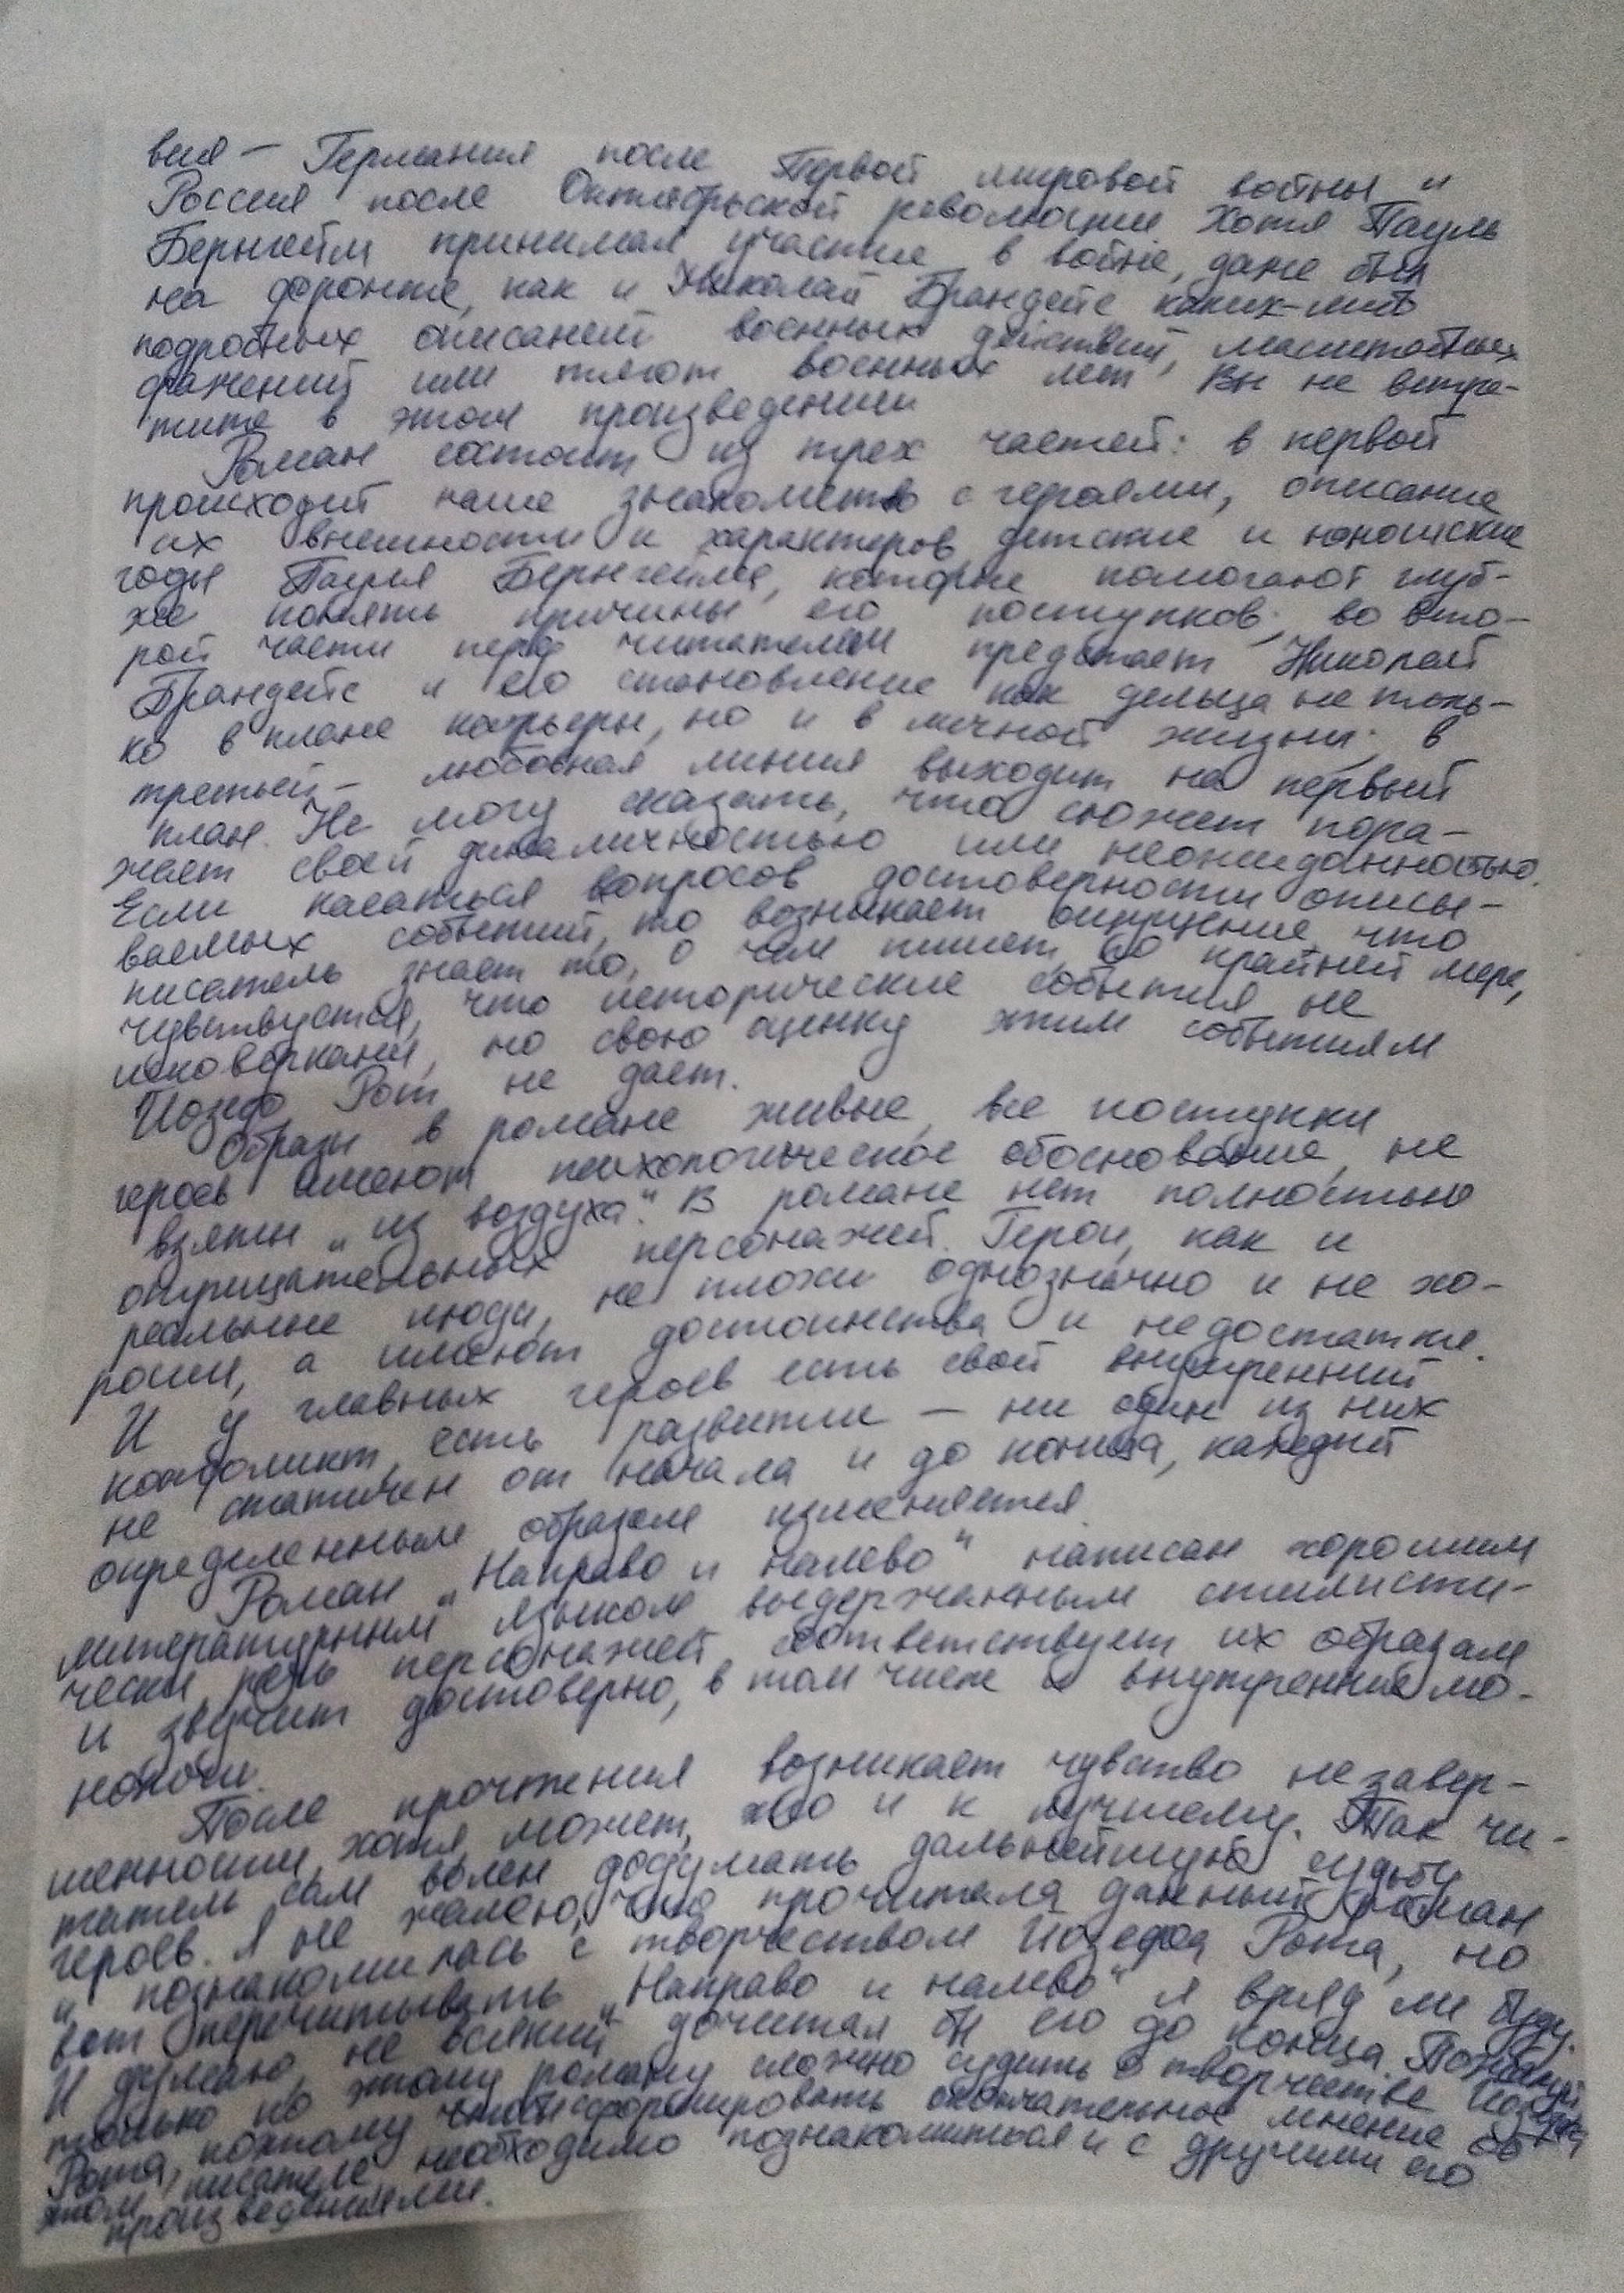 вия — Германия после Первой мировой войны и
Россия после Октябрьской революции. Хотя Пауль
Бернгейм принимал участие в войне, даже был
на фронте, как и Николай Брандейс каких-либо
подробных описаний военных действий, масштабных
сражений или тягот военных лет Вы не встре-
тите в этом произведении
Роман состоит из трех частей: в первой
происходит наше знакомство с героями, описание
их внешности и характеров, детские и юношеские
годы Пауля Бернгейма, которые помогают глуб-
же понять причины его поступков; во вто-
рой части перед читателем предстает Николай
Брандейс и его становление как дельца не толь-
ко в плане карьеры, но и в личной жизни; в
третьей — любовная линия выходит на первый
план. Не могу сказать, что сюжет пора-
жает своей динамичностью или неожиданностью.
Если касаться вопросов достоверности описы-
ваемых событий, то возникает ощущение, что
писатель знает то, о чем пишет, по крайней мере,
чувствуется, что исторические события не
исковерканы, но свою оценку этим событиям
Йозеф Рот не дает.
Образы в романе живые, все поступки
героев имеют психологическое обоснование, не
взяты „из воздуха". В романе нет полностью
отрицательных персонажей. Герои, как и
реальные люди, не плохи однозначно и не хо-
роши, а имеют достоинства и недостатки.
И у главных героев есть свой внутренний
конфликт, есть развитие — ни один из них
не статичен от начала и до конца, каждый
определенным образом изменяется.
Роман „Направо и налево" написан хорошим
литературным языком выдержанным стилисти-
чески, речь персонажей соответствует их образам
и звучит достоверно, в том числе и внутренние мо-
нологи.
После прочтения возникает чувство незавер-
шенности, хотя, может, это и к лучшему. Так чи-
татель сам волен додумать дальнейшую судьбу
героев. Я не жалею, что прочитала данный роман
и познакомилась с творчеством Йозефа Рота, но
вот перечитывать „Направо и налево" я вряд ли буду.
И думаю, не всякий дочитал бы его до конца. Пожалуй
только по этому роману сложно судить о творчестве Йозефа
Рота, поэтому чтобы сформировать окончательное мнение об
этом писателе необходимо познакомиться и с другими его
произведениями.